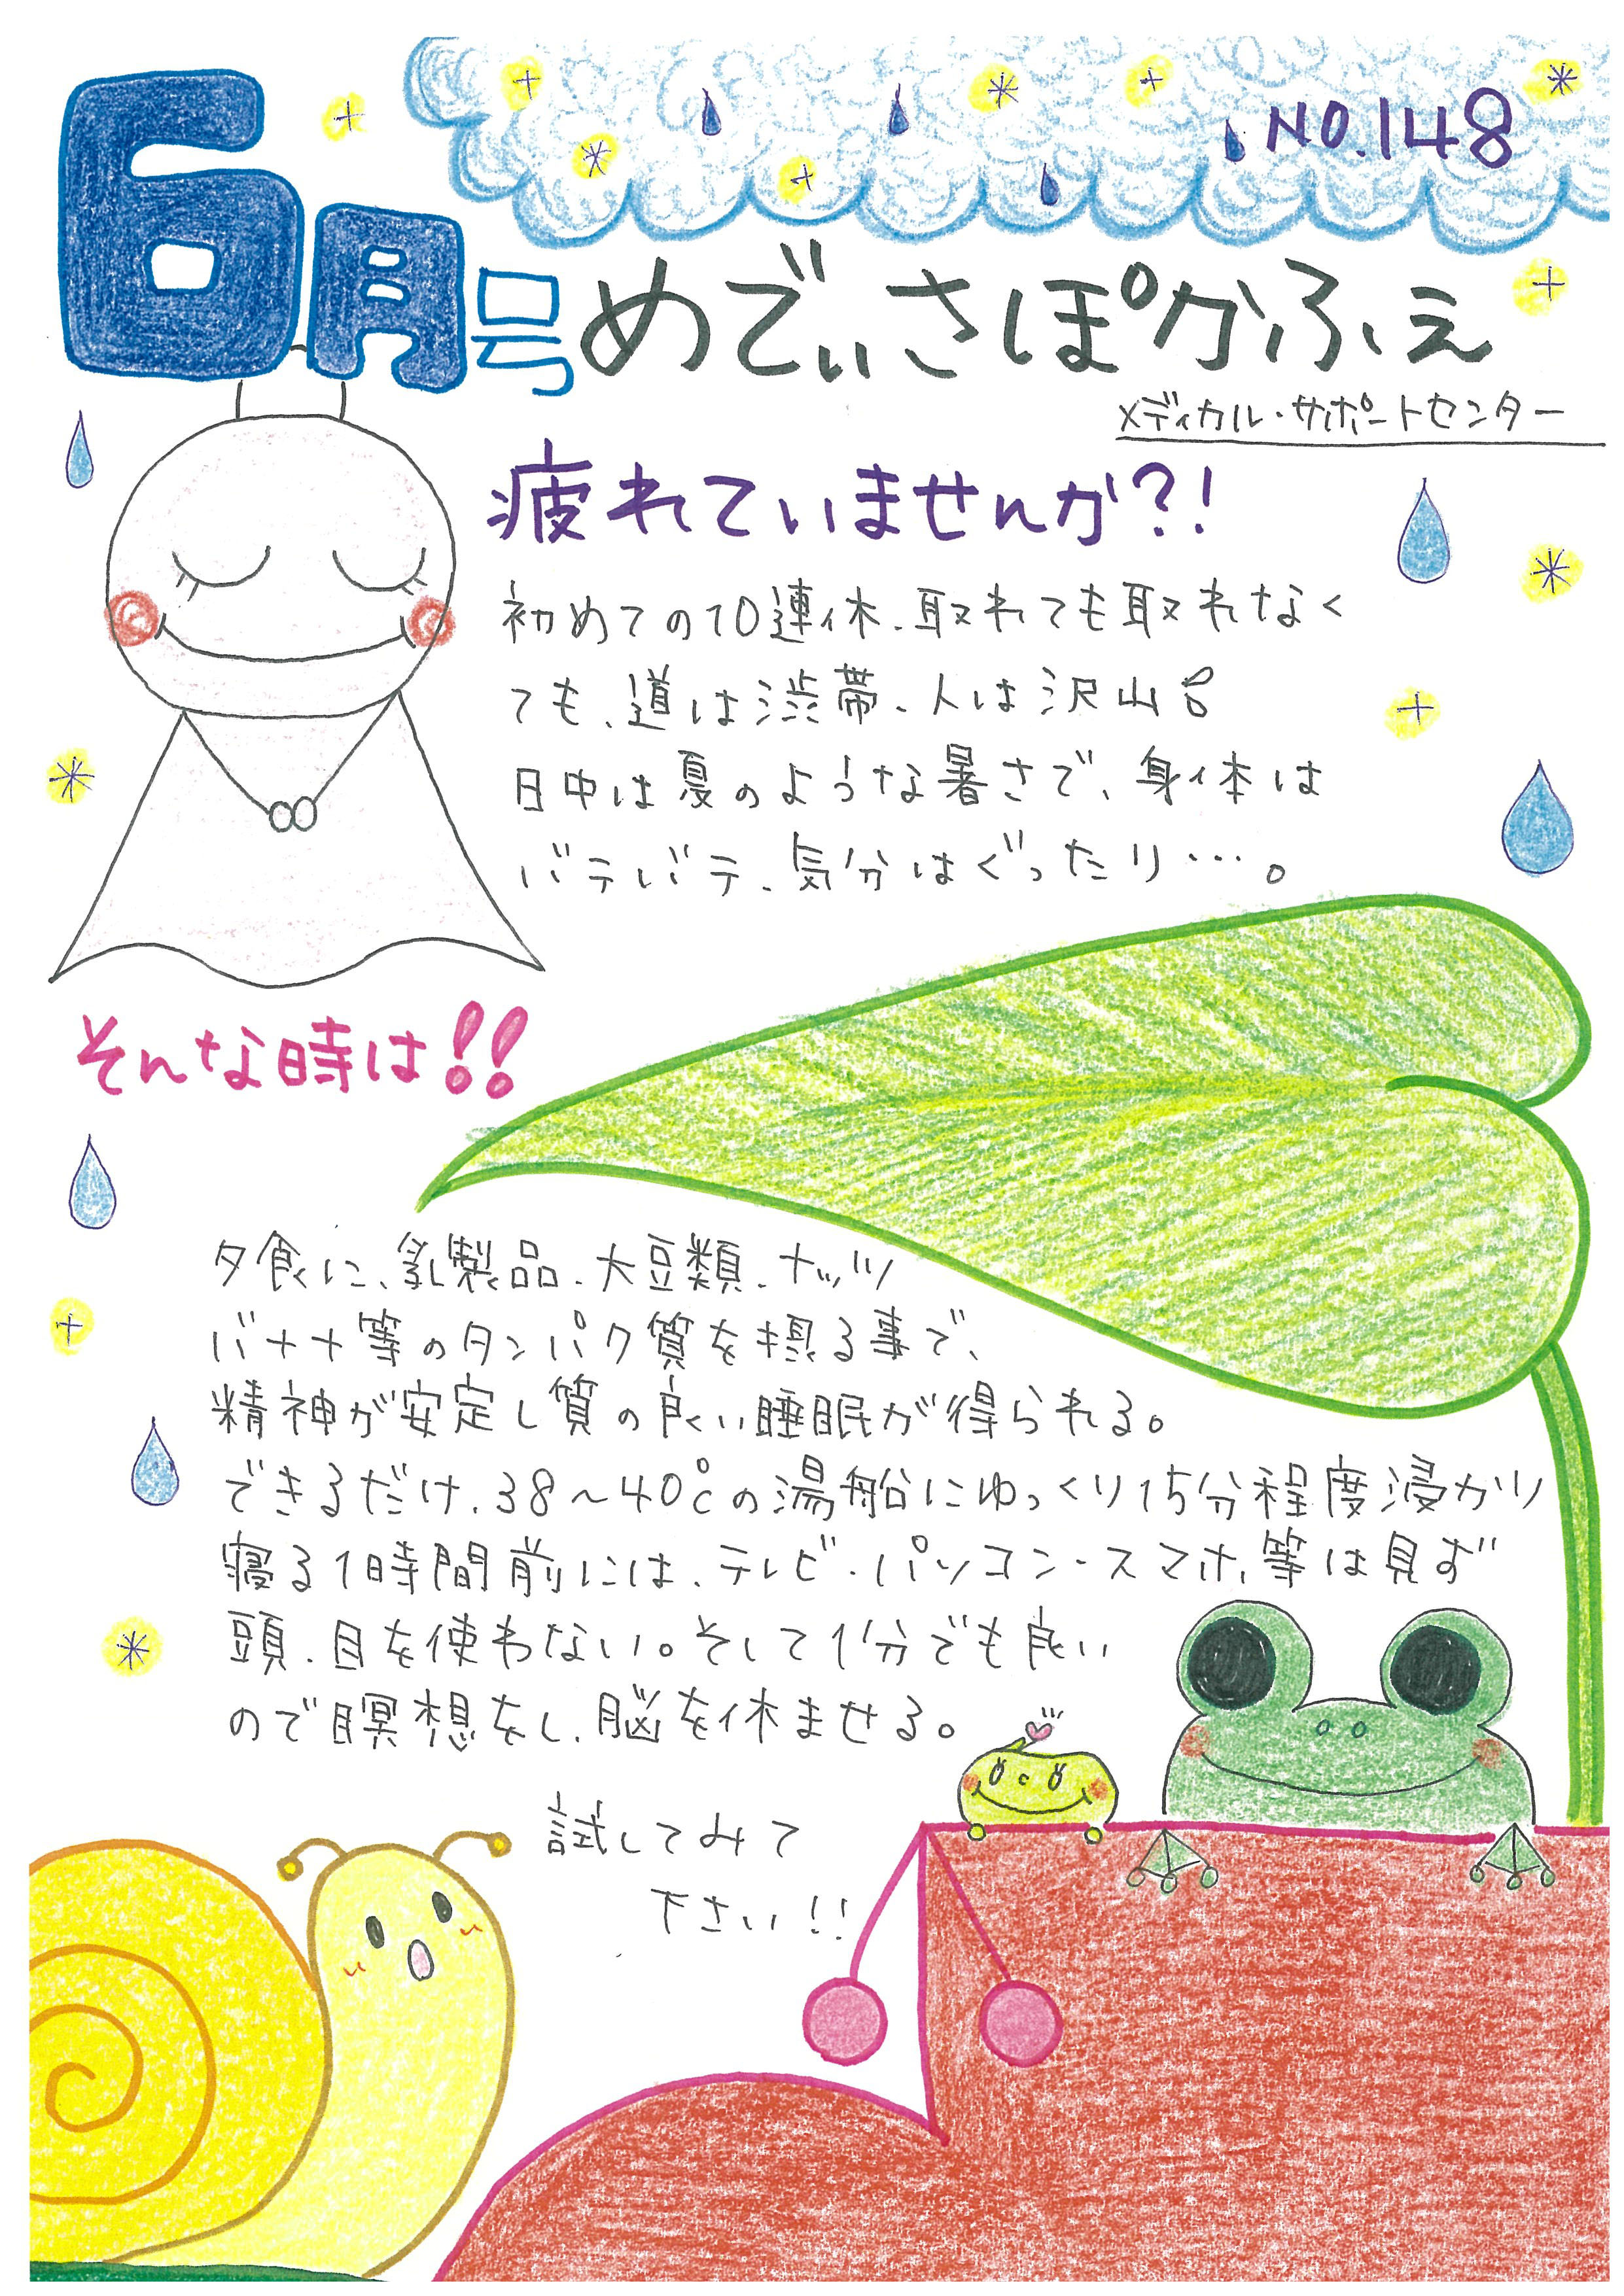 NO.148
6月号 めでぃさぽかふぇ
メディカル・サポートセンター
疲れていませんか?!
初めての10連休、取れても取れなく
ても、道は渋帯、人は沢山
日中は夏のような暑さで、身体は
バテバテ、気分はぐったり…。
そんな時は!!
夕食に、乳製品、大豆類、ナッツ
バナナ等のタンパク質を摂る事で、
精神が安定し質の良い睡眠が得られる。
できるだけ、38〜40℃の湯船にゆっくり15分程度浸かり
寝る1時間前には、テレビ・パソコン・スマホ、等は見ず
頭、目を使わない。そして1分でも良い
ので瞑想をし、脳を休ませる。
試してみて
下さい!!